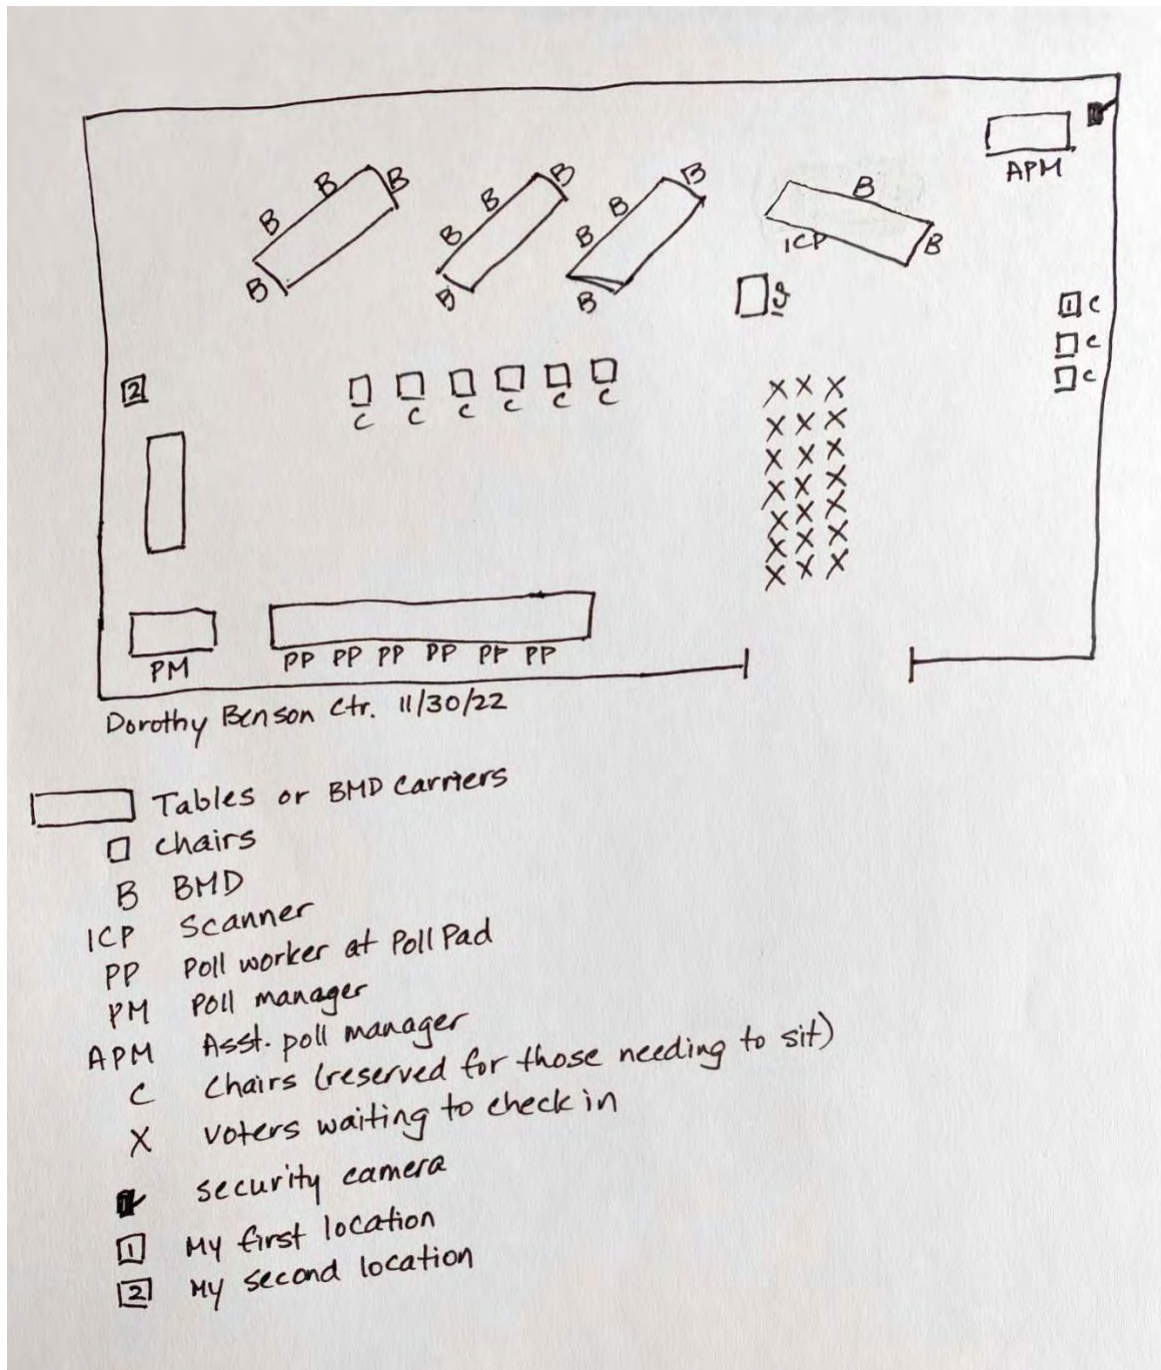 APM
B B B B B B
B B B B B
ICP B
B B B
1 C
C
C
2
C C C C C C
X X X
X X X
X X X
X X X
X X X
X X X
X X X
PM PP PP PP PP PP PP
Dorothy Benson Ctr. 11/30/22
Tables or BMD carriers
chairs
B BMD
ICP Scanner
PP Poll worker at Poll Pad
PM Poll manager
APM Asst. poll manager
C Chairs (reserved for those needing to sit)
X Voters waiting to check in
security camera
1 My first location
2 My second location